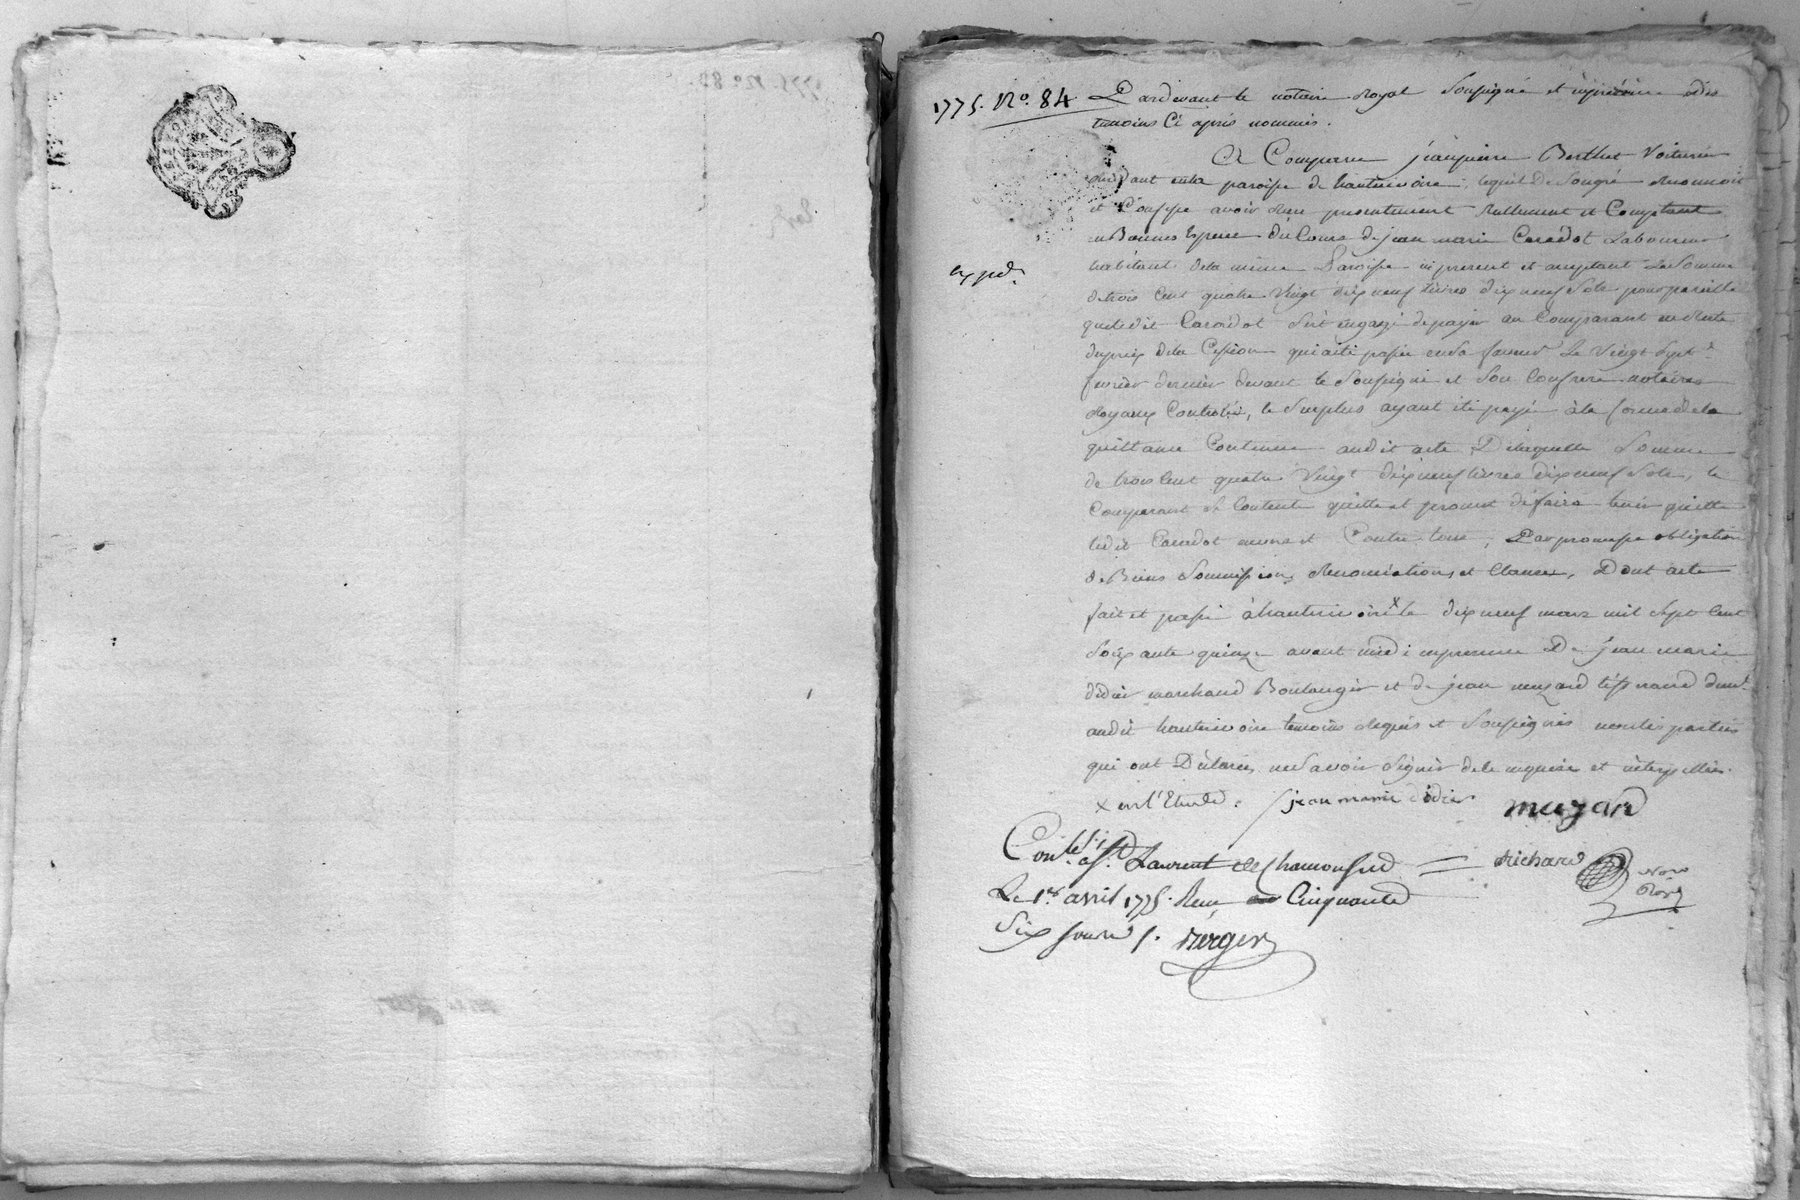 1775. No. 84
Pardevant le notaire Royal Soussigné et en présence des
temoins Ci après nommés.
A Comparu jeanpierre Berthet Voiturier
demeurant enla paroisse de hauterivoire, lequel De Songré Reconnoit
et Confesse avoir Reçu presentement Réellement et Comptant
en Bonnes Especes du Cours de jean marie Caradot Laboureur
habitant dela même Paroisse icy present et acceptant La Somme
detrois Cent quatre Vingt dix neuf livres dix neuf Sols pour pareille
que ledit Caradot s'est engagé depayer au Comparant en Reste
duprix dela Cession qui aeté passée en sa faveur Le Vingt Sept
fevrier dernier devant le Soussigné et Son Confrere notaires
Royaux Controlée, le Surplus ayant été payé à la forme dela
quittance Contenue audit acte, De laquelle Somme
de trois Cent quatre Vingt dix neuf livres dix neuf Sols, le
Comparant Se Contente quitte et promet de faire tenir quitte
ledit Caradot envers et Contre tous, Par promesse obligation
de Biens Soumissions, Renonciations, et Clauses, Dont acte
fait et passé à hauterivoire x le dix neuf mars mil Sept Cent
Soixante quinze avant midi en presence De jean marie
didier marchand Boulanger et de jean muzard tisserand demt
audit hauterivoire temoins Requis et Soussignés non les parties
qui ont Déclaré ne Savoir Signer de ce enquises et interpellées.
x en l'Etude.
exped.
jean marie didier
muzard
Richard
Nore
Royal
Conlé à St Laurent de Chamousset
Le 1er avril 1775. Reçu Cinquante
Six sous
Berger